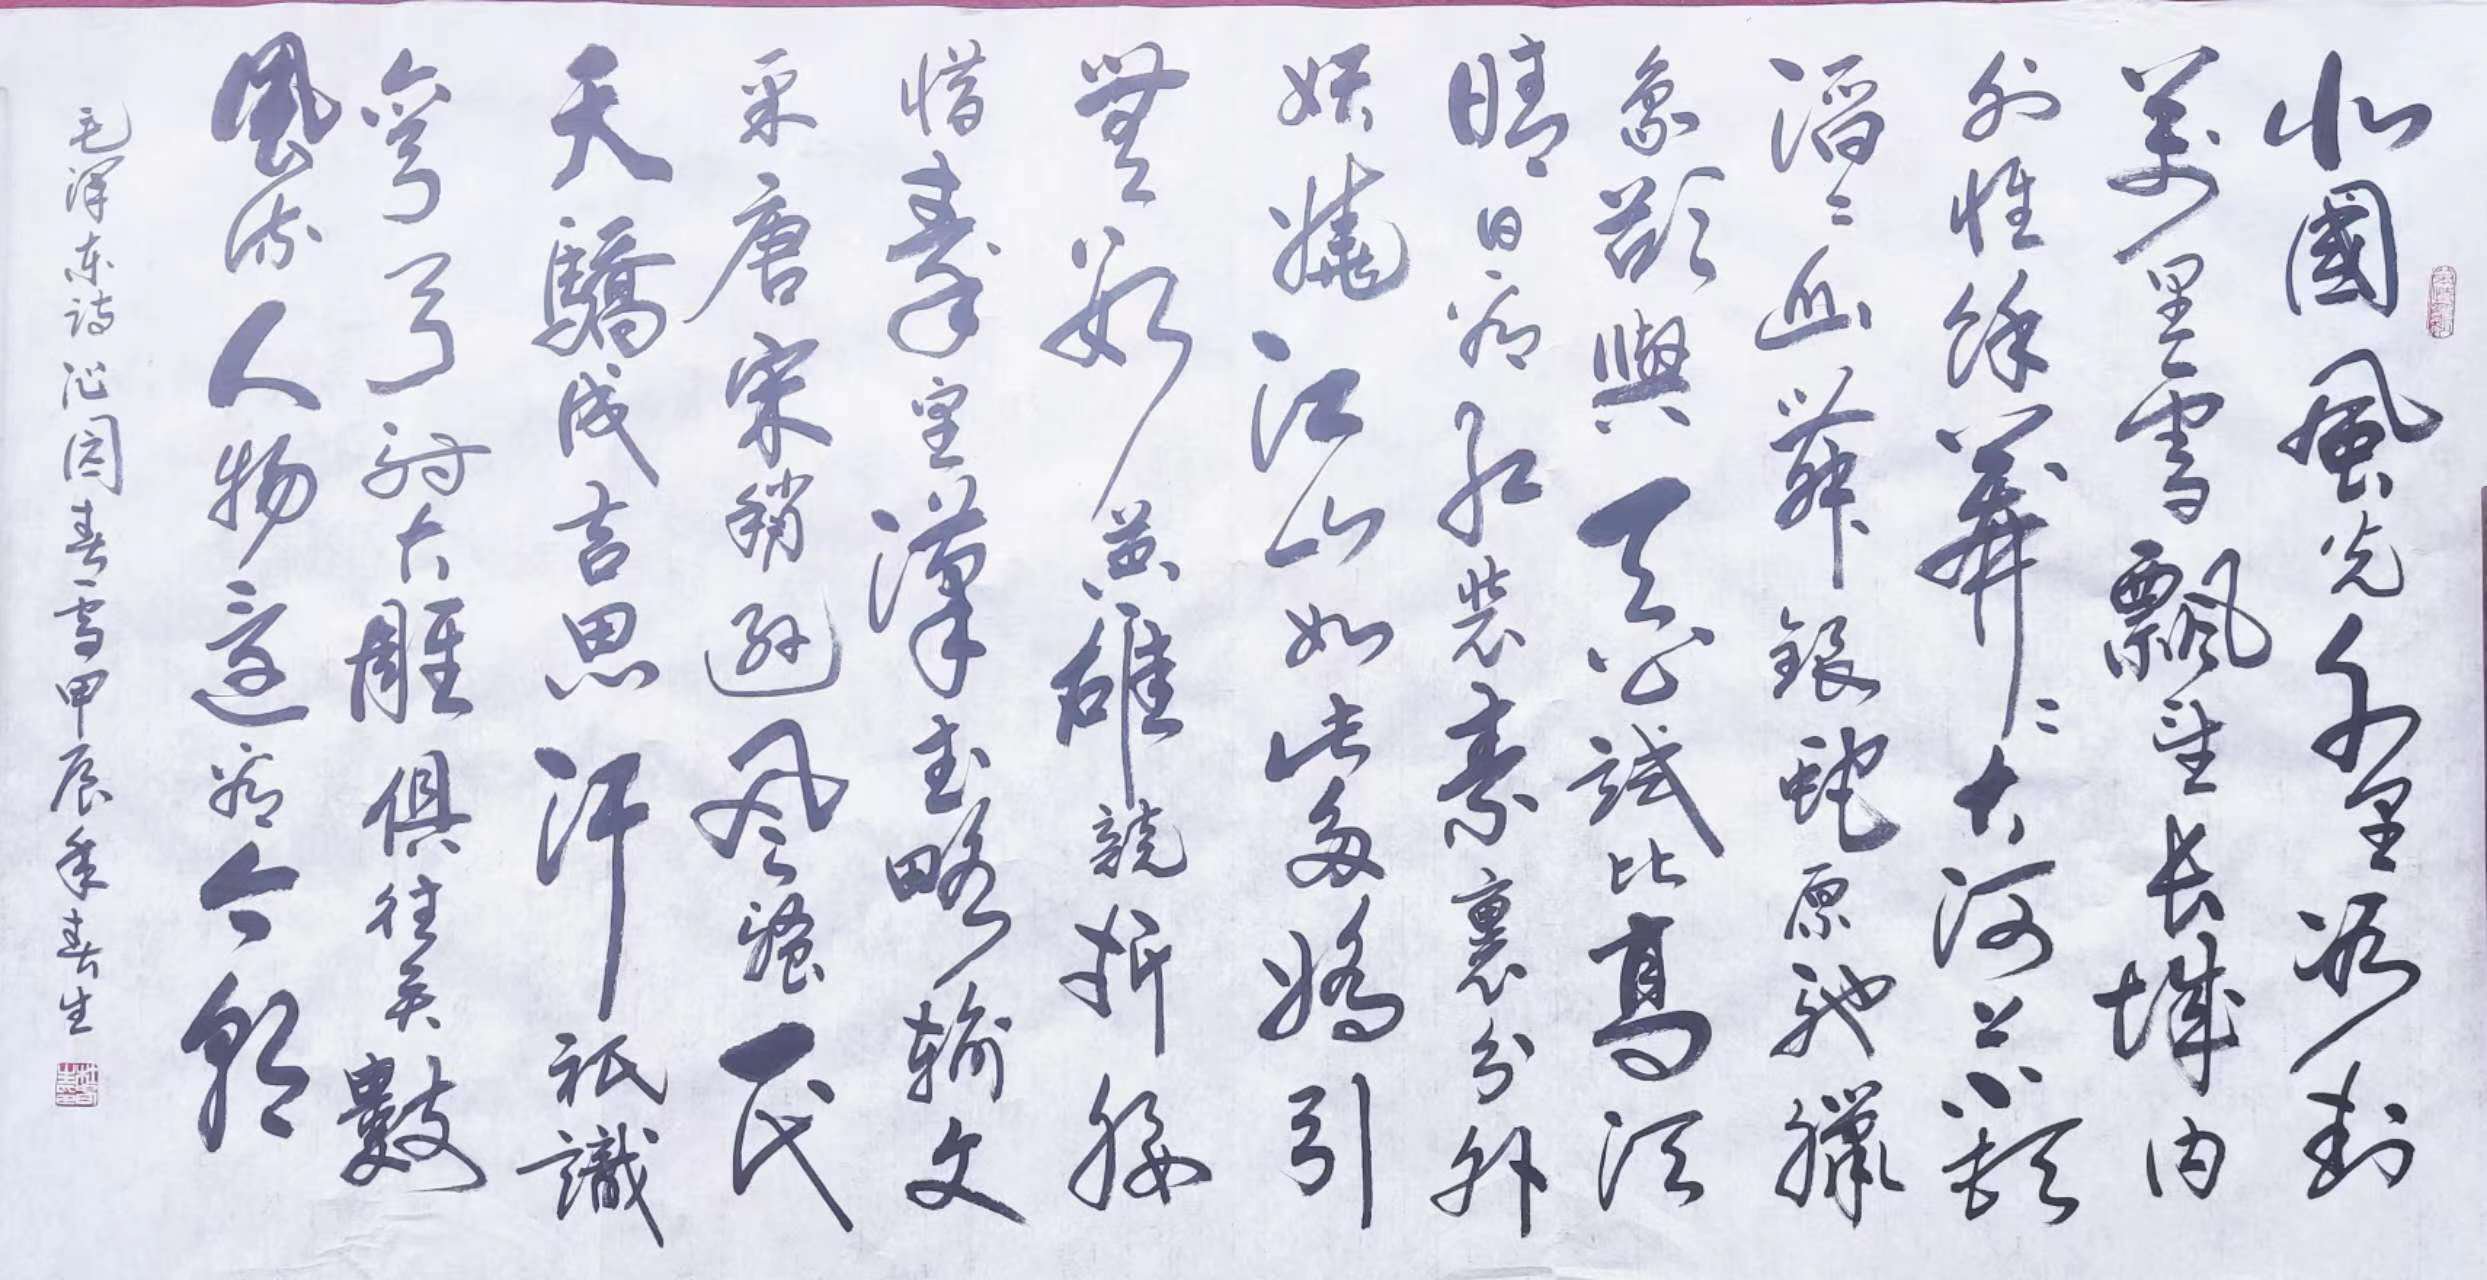 北國風光千里冰封
萬里雪飄望长城内
外惟餘莽々大河上下頓
滔々山舞銀蛇原馳臘
象欲與天公試比高須
晴日看红裝素裹分外
妖嬈江山如此多嬌引
無數英雄競折腰
惜秦皇漢武略輸文
采唐宋稍遜风骚一代
天驕成吉思汗祇識
彎弓射大雕俱往矣數
風流人物還看今朝
毛泽东诗沁园春雪甲辰年春生